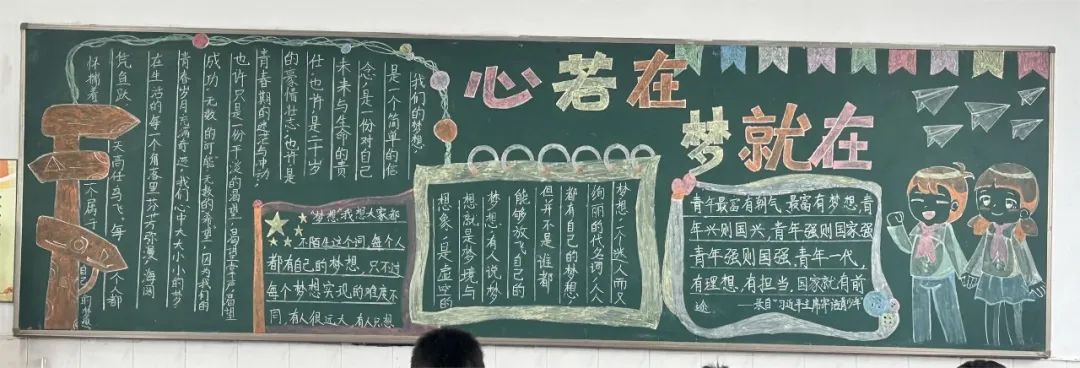 心若在
梦就在
我们的梦想
是一个简单的信
念,是一份对自己
未来与生命的责
任,也许是二十岁
的豪情壮志,也许是
青春期的迷茫与冲动,
也许只是一份平淡的渴望,渴望掌声,渴望
成功,无数的可能,无数的希望,因为我们的
青春岁月充满奇迹,我们心中大大小小的梦
在生活的每一个角落里芬芳弥漫,海阔
凭鱼跃,天高任鸟飞,每一个人都
怀揣着一个属于自己的梦想
梦想,我想大家都
不陌生这个词,每个人
都有自己的梦想,只不过
每个梦想实现的难度不
同,有人很远大,有人只想
梦想,一个迷人而又
绚丽的代名词,人人
都有自己的梦想,
但并不是谁都
能够放飞自己的
梦想,有人说,梦
想就是梦境与
想象,是虚空的
青年最富有朝气,最富有梦想,青
年兴则国兴,青年强则国家强
青年强则国强,青年一代,
有理想,有担当,国家就有前
途
来自"习近平主席寄语青少年"